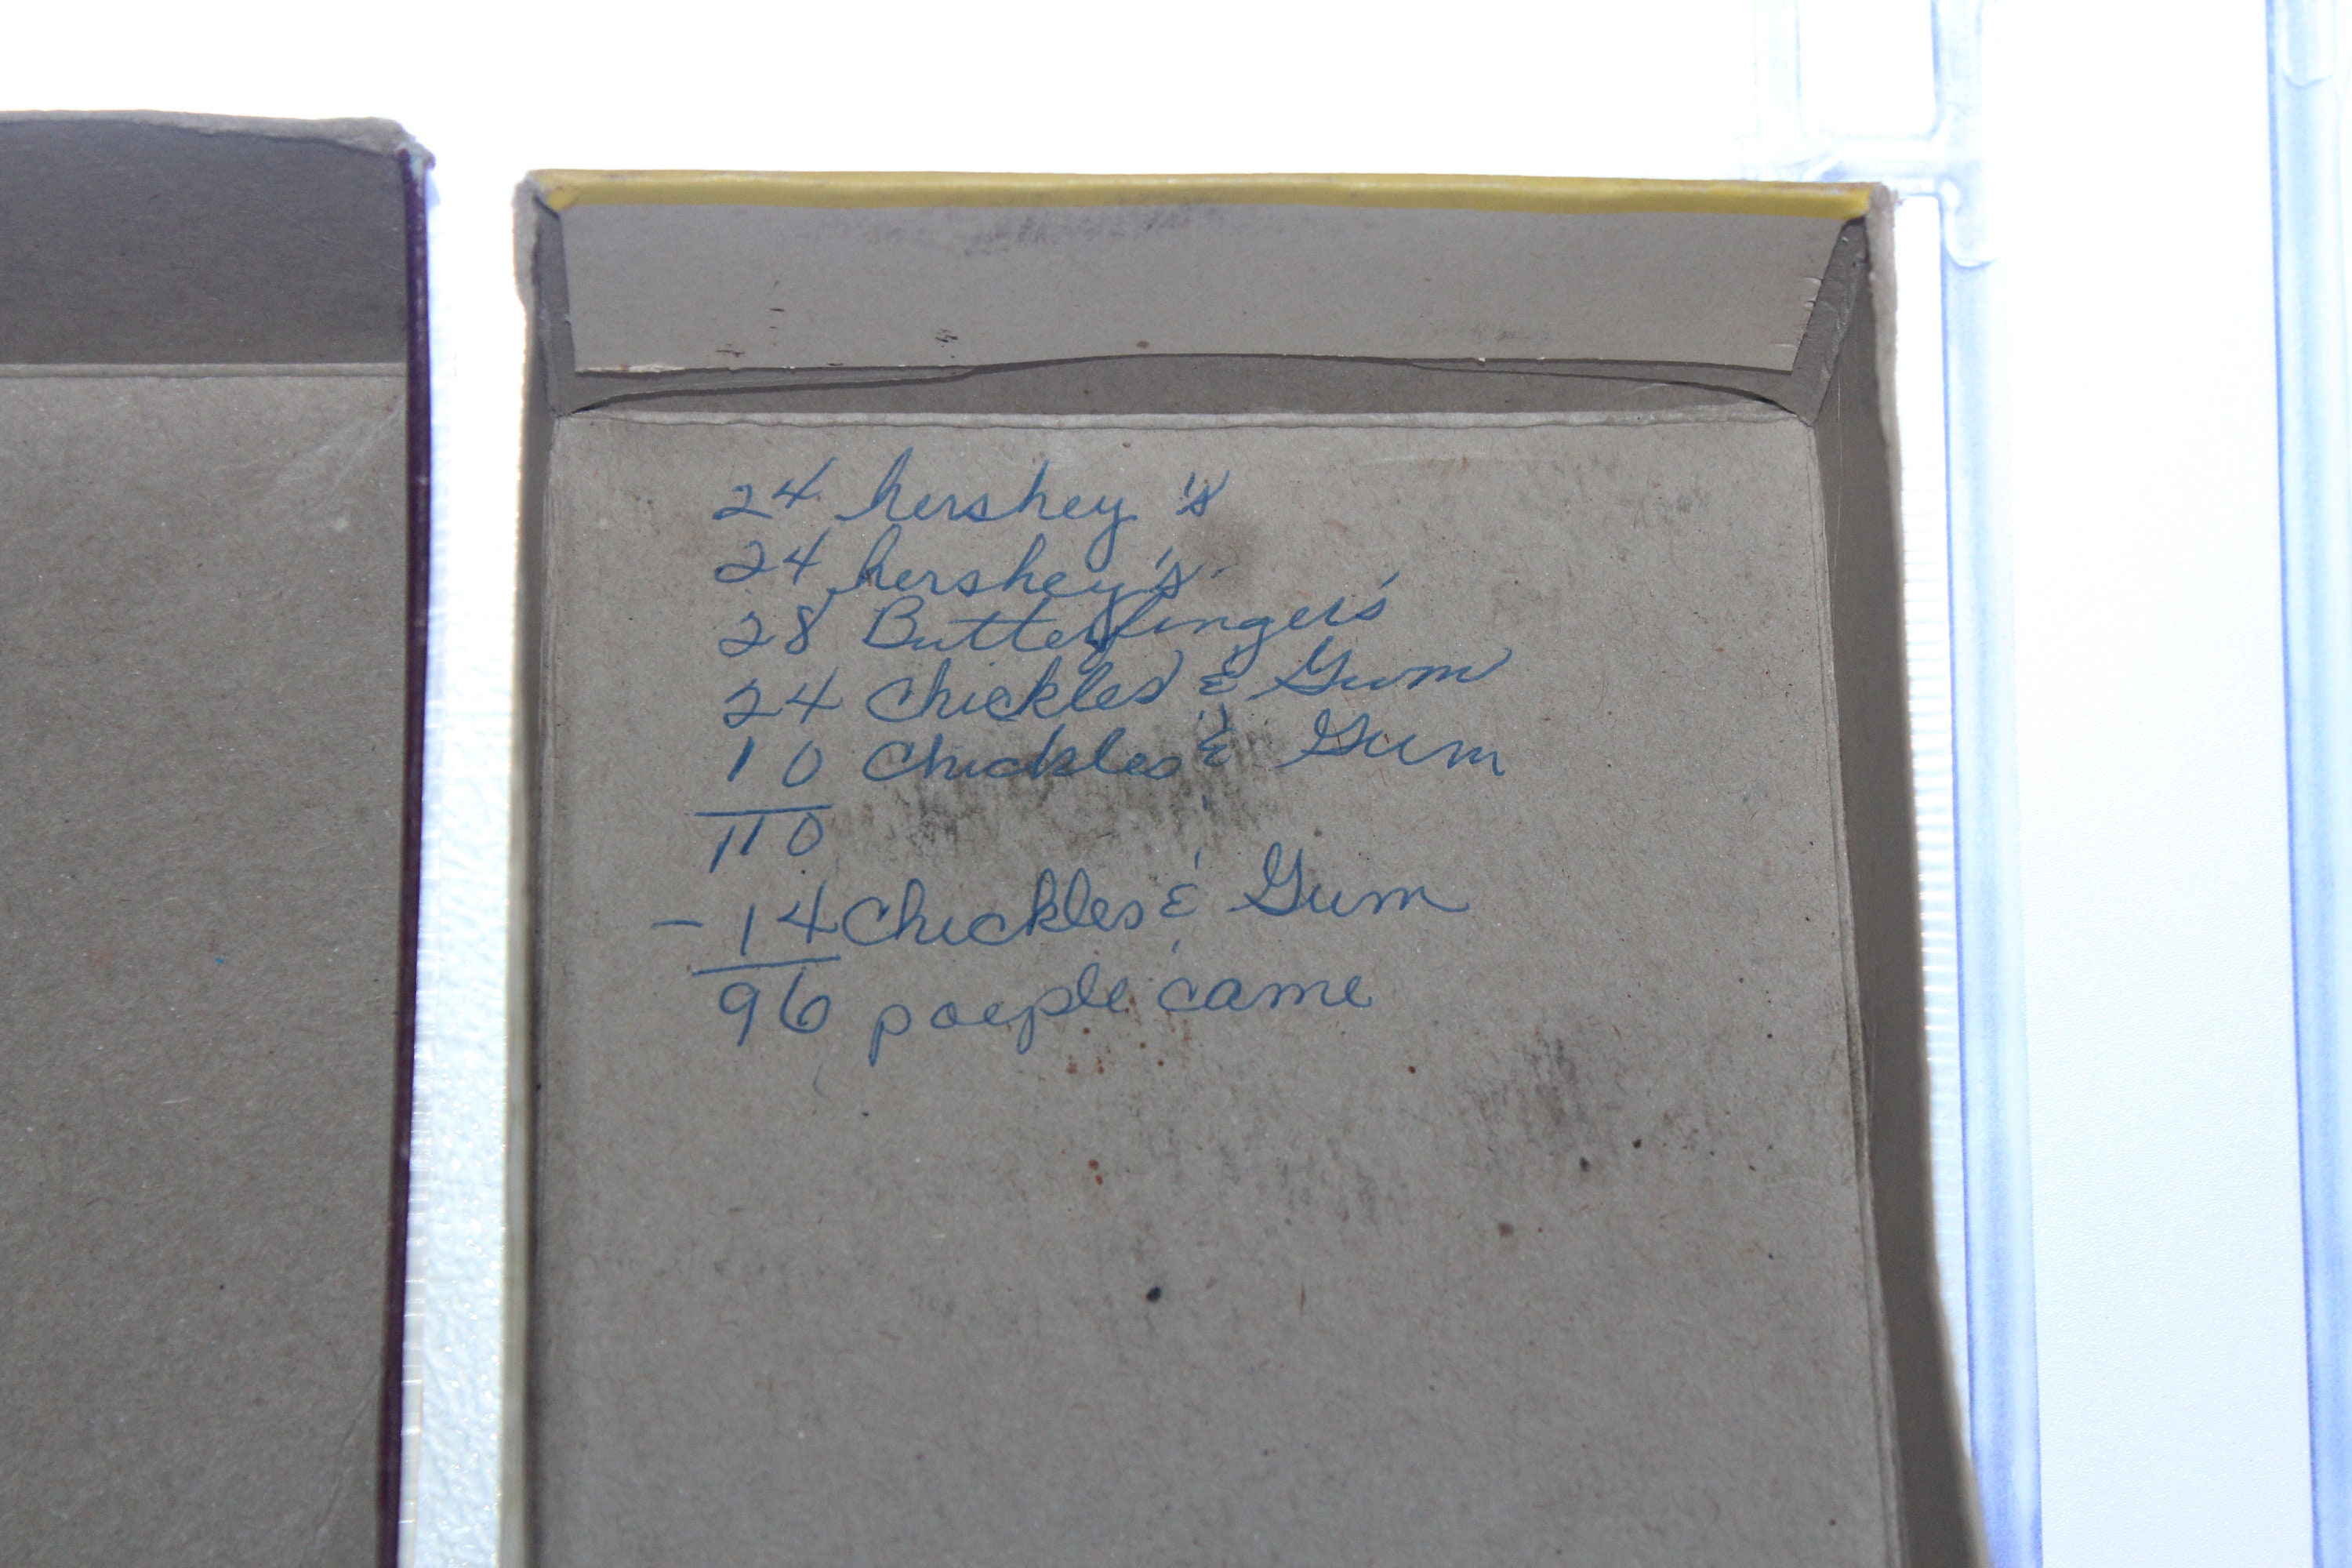 24 hershey's
24 hershey's
28 Butterfingers
24 Chickles & Gum
10 Chickles & Gum
110
- 14 Chickles & Gum
96 poeple came